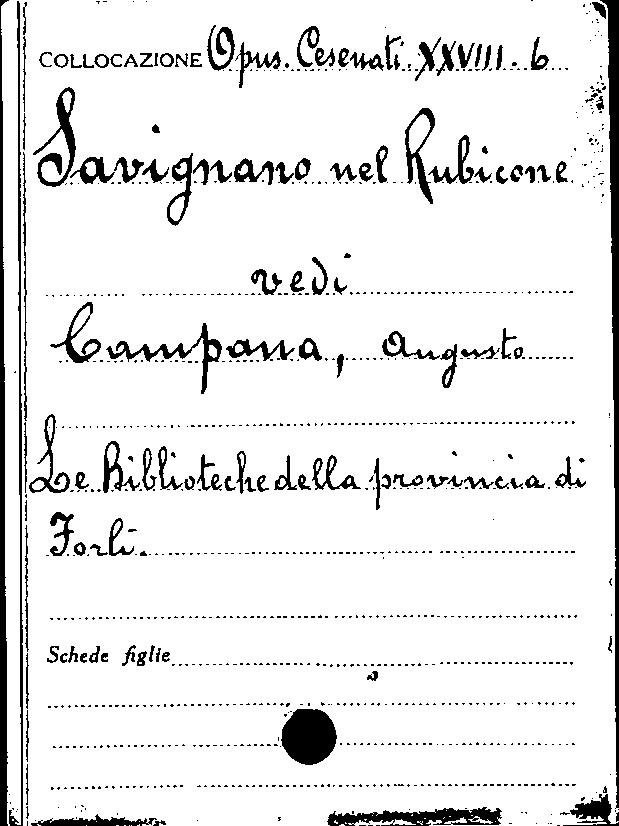 COLLOCAZIONE Opus. Cesenati. XXVIII. 6
Savignano nel Rubicone
vedi
Campana, Augusto
Le Biblioteche della provincia di
Forlì.
Schede figlie